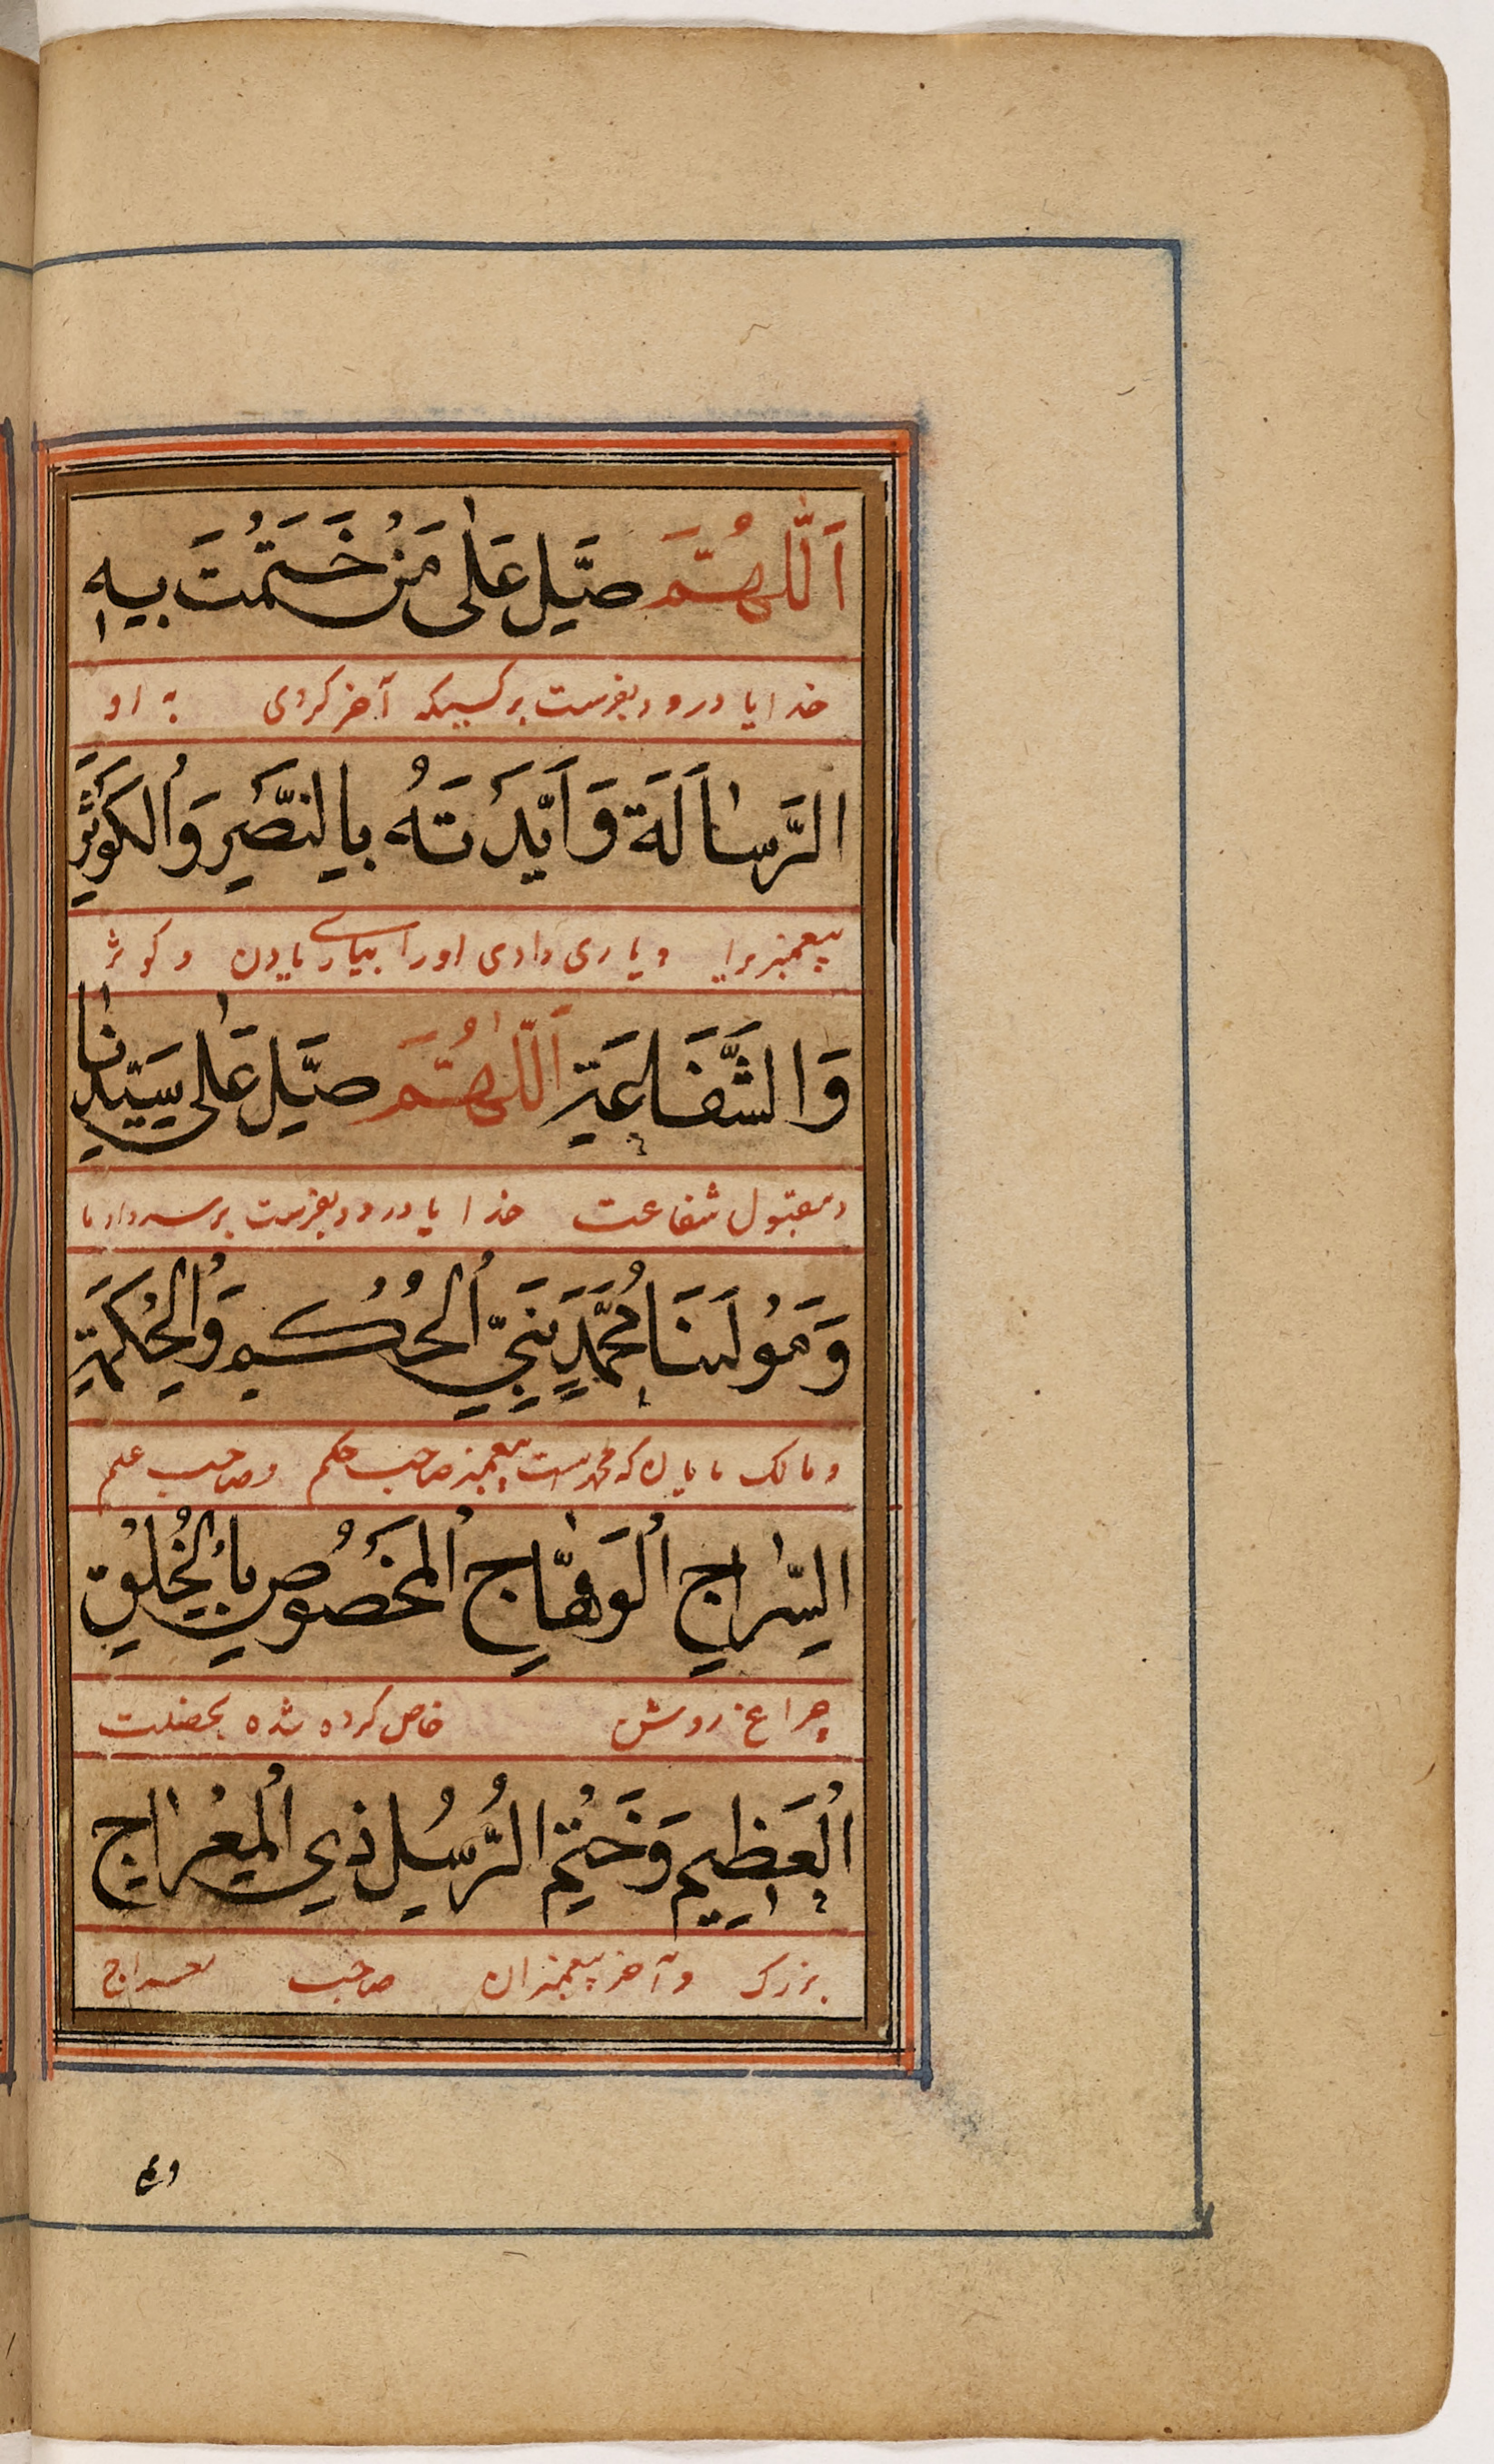 اَللّٰهُمَّ صَلِّ عَلٰى مَنْ خَتَمْتَ بِهِ
خدایا درود بفرست بر کسیکه آخر کردی به او
الرِّسَالَةَ وَاَيَّدْتَهُ بِالنَّصْرِ وَالْكَوْثَرِ
پیغمبر را و یاری دادی او را بیاری و کوثر
وَالشَّفَاعَةِ اَللّٰهُمَّ صَلِّ عَلٰى سَيِّدِنَا
و مقبول شفاعت خدایا درود بفرست بر سردار ما
وَمَوْلٰنَا مُحَمَّدٍ نَبِيِّ الْحُكْمِ وَالْحِكْمَةِ
و مالک مایان که محمد است پیغمبر صاحب حکم و صاحب علم
السِّرَاجِ الْوَهَّاجِ الْمَخْصُوصِ بِالْخُلُقِ
چراغ روشن خاص کرده شده بخصلت
الْعَظِيمِ وَخَتْمِ الرُّسُلِ ذِي الْمِعْرَاجِ
بزرک و آخر پیغمبران صاحب معراج